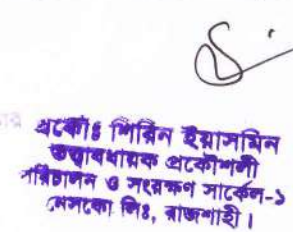 প্রকৌঃ শিরিন ইয়াসমিন
তত্ত্বাবধায়ক প্রকৌশলী
পরিচালন ও সংরক্ষণ সার্কেল-১
নেসকো লিঃ, রাজশাহী।